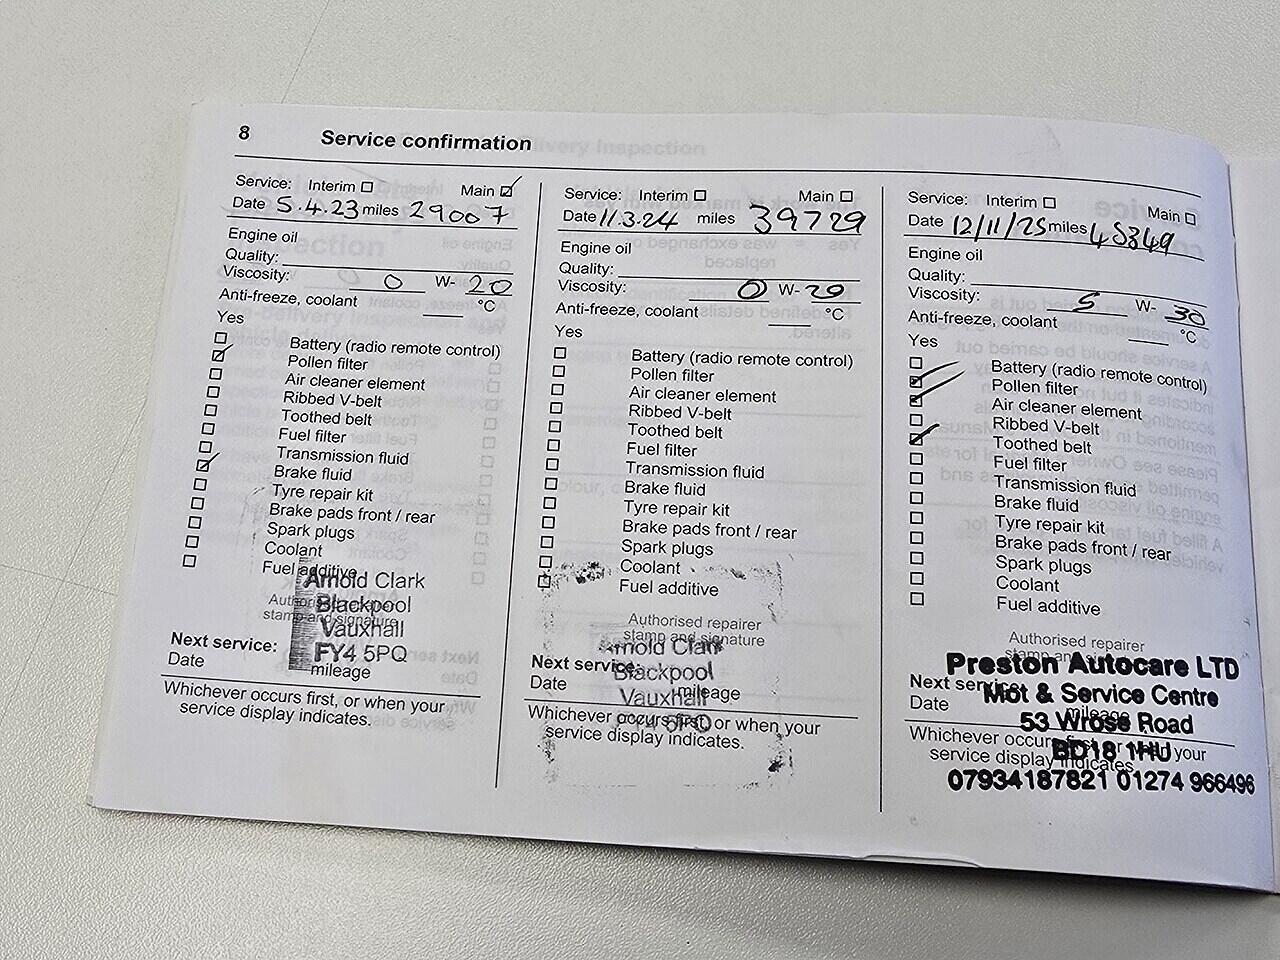 8 Service confirmation
Service: Interim Main
Date 5.4.23 miles 29007
Engine oil
Quality:
Viscosity: 0 W- 20
Anti-freeze, coolant °C
Yes
Battery (radio remote control)
Pollen filter
Air cleaner element
Ribbed V-belt
Toothed belt
Fuel filter
Transmission fluid
Brake fluid
Tyre repair kit
Brake pads front / rear
Spark plugs
Coolant
Fuel additive
Arnold Clark
Blackpool
Vauxhall
FY4 5PQ
stamp and signature
Next service:
Date mileage
Whichever occurs first, or when your
service display indicates.
Service: Interim Main
Date 11.3.24 miles 39729
Engine oil
Quality:
Viscosity: 0 W- 20
Anti-freeze, coolant °C
Yes
Battery (radio remote control)
Pollen filter
Air cleaner element
Ribbed V-belt
Toothed belt
Fuel filter
Transmission fluid
Brake fluid
Tyre repair kit
Brake pads front / rear
Spark plugs
Coolant
Fuel additive
Authorised repairer
stamp and signature
Arnold Clark
Blackpool
Vauxhall
Next service:
Date mileage
Whichever occurs first, or when your
service display indicates.
Service: Interim Main
Date 12/11/25 miles 45349
Engine oil
Quality:
Viscosity: 5 W- 30
Anti-freeze, coolant °C
Yes
Battery (radio remote control)
Pollen filter
Air cleaner element
Ribbed V-belt
Toothed belt
Fuel filter
Transmission fluid
Brake fluid
Tyre repair kit
Brake pads front / rear
Spark plugs
Coolant
Fuel additive
Authorised repairer
Preston Autocare LTD
Mot & Service Centre
53 Wrose Road
BD18 1HU
07934187821 01274 966496
Next service:
Date mileage
Whichever occurs first, or when your
service display indicates.